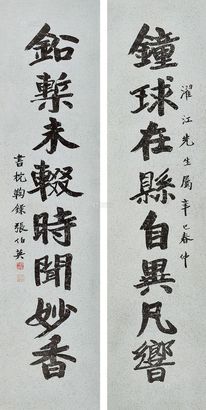 鐘球在縣自異凡響
濯江先生屬辛巳春仲
鉛槧未輟時聞妙香
書枕鞠錄張伯英